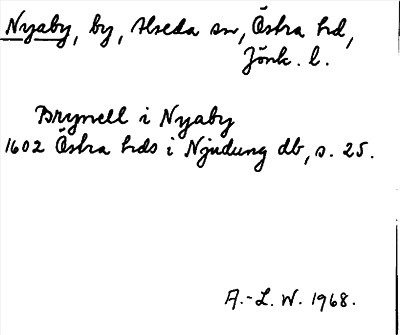 Nyaby, by, Alseda sn, Östra hd,
Jönk. l.
Brynell i Nyaby
1602 Östra hds i Njudung db, s. 25.
A.-L. W. 1968.